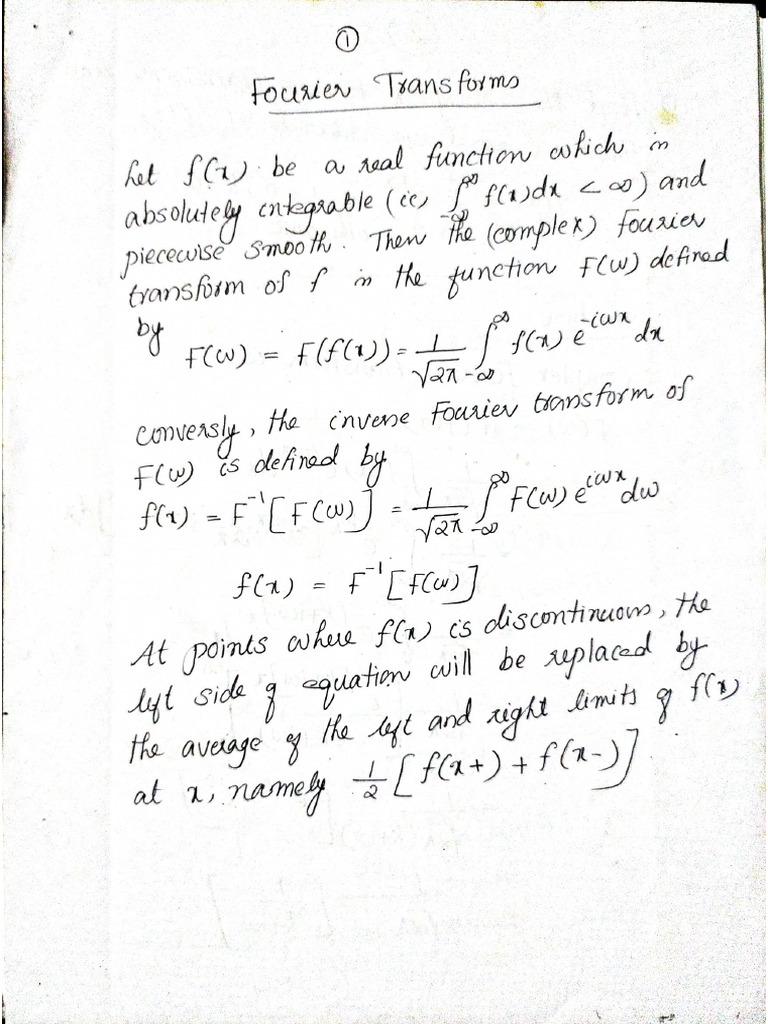 ①
Fourier Transforms
Let f(x) be a real function which is
absolutely integrable (ie, ∫_{-∞}^{∞} f(x)dx < ∞) and
piecewise smooth. Then the (complex) fourier
transform of f is the function F(ω) defined
by
F(ω) = F(f(x)) = 1/√2π ∫_{-∞}^{∞} f(x) e^{-iωx} dx
conversly, the inverse Fourier transform of
F(ω) is defined by
f(x) = F^{-1}[F(ω)] = 1/√2π ∫_{-∞}^{∞} F(ω) e^{iωx} dω
f(x) = F^{-1}[F(ω)]
At points where f(x) is discontinuous, the
left side of equation will be replaced by
the average of the left and right limits of f(x)
at x, namely 1/2 [f(x+) + f(x-)].